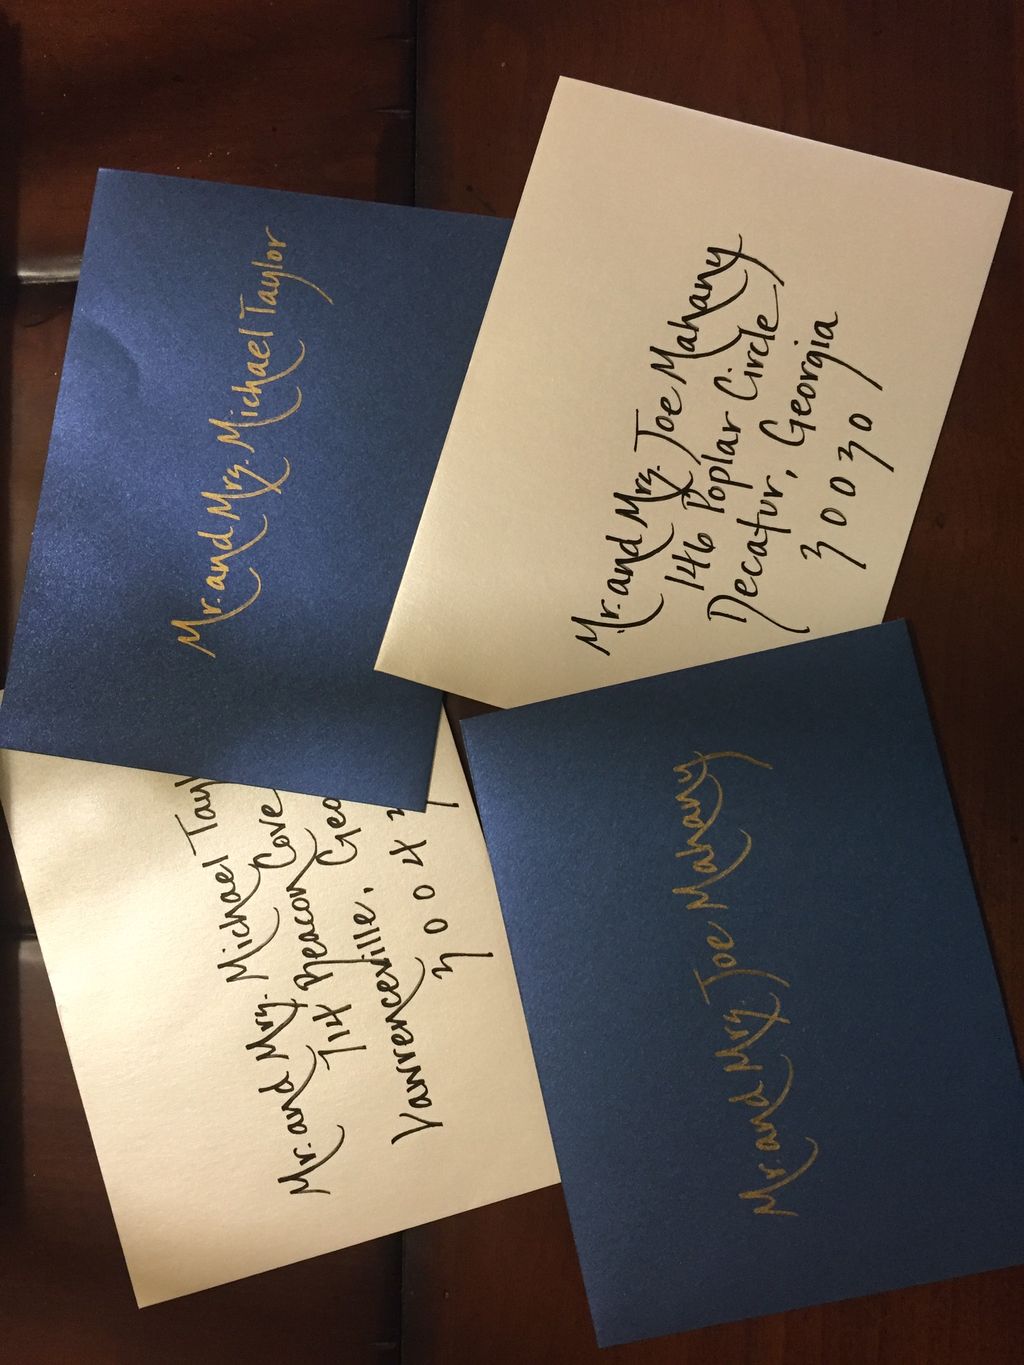 Mr. and Mrs. Michael Taylor
Mr. and Mrs. Joe Mahany
146 Poplar Circle
Decatur, Georgia
30030
Mr. and Mrs. Michael Tayl
714 Beacon Cove
Lawrenceville, Geo
3004
Mr. and Mrs. Joe Mahany